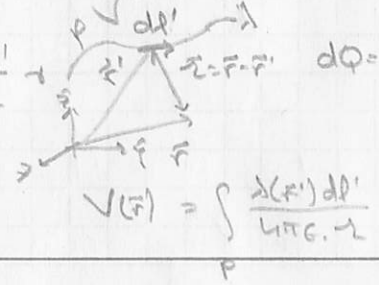 P dl' λ
r⃗' 𝓇⃗ = r⃗ - r⃗' dQ =
ŷ r⃗
V(r⃗) = ∫ λ(r⃗') dl' / 4πε₀ 𝓇
P